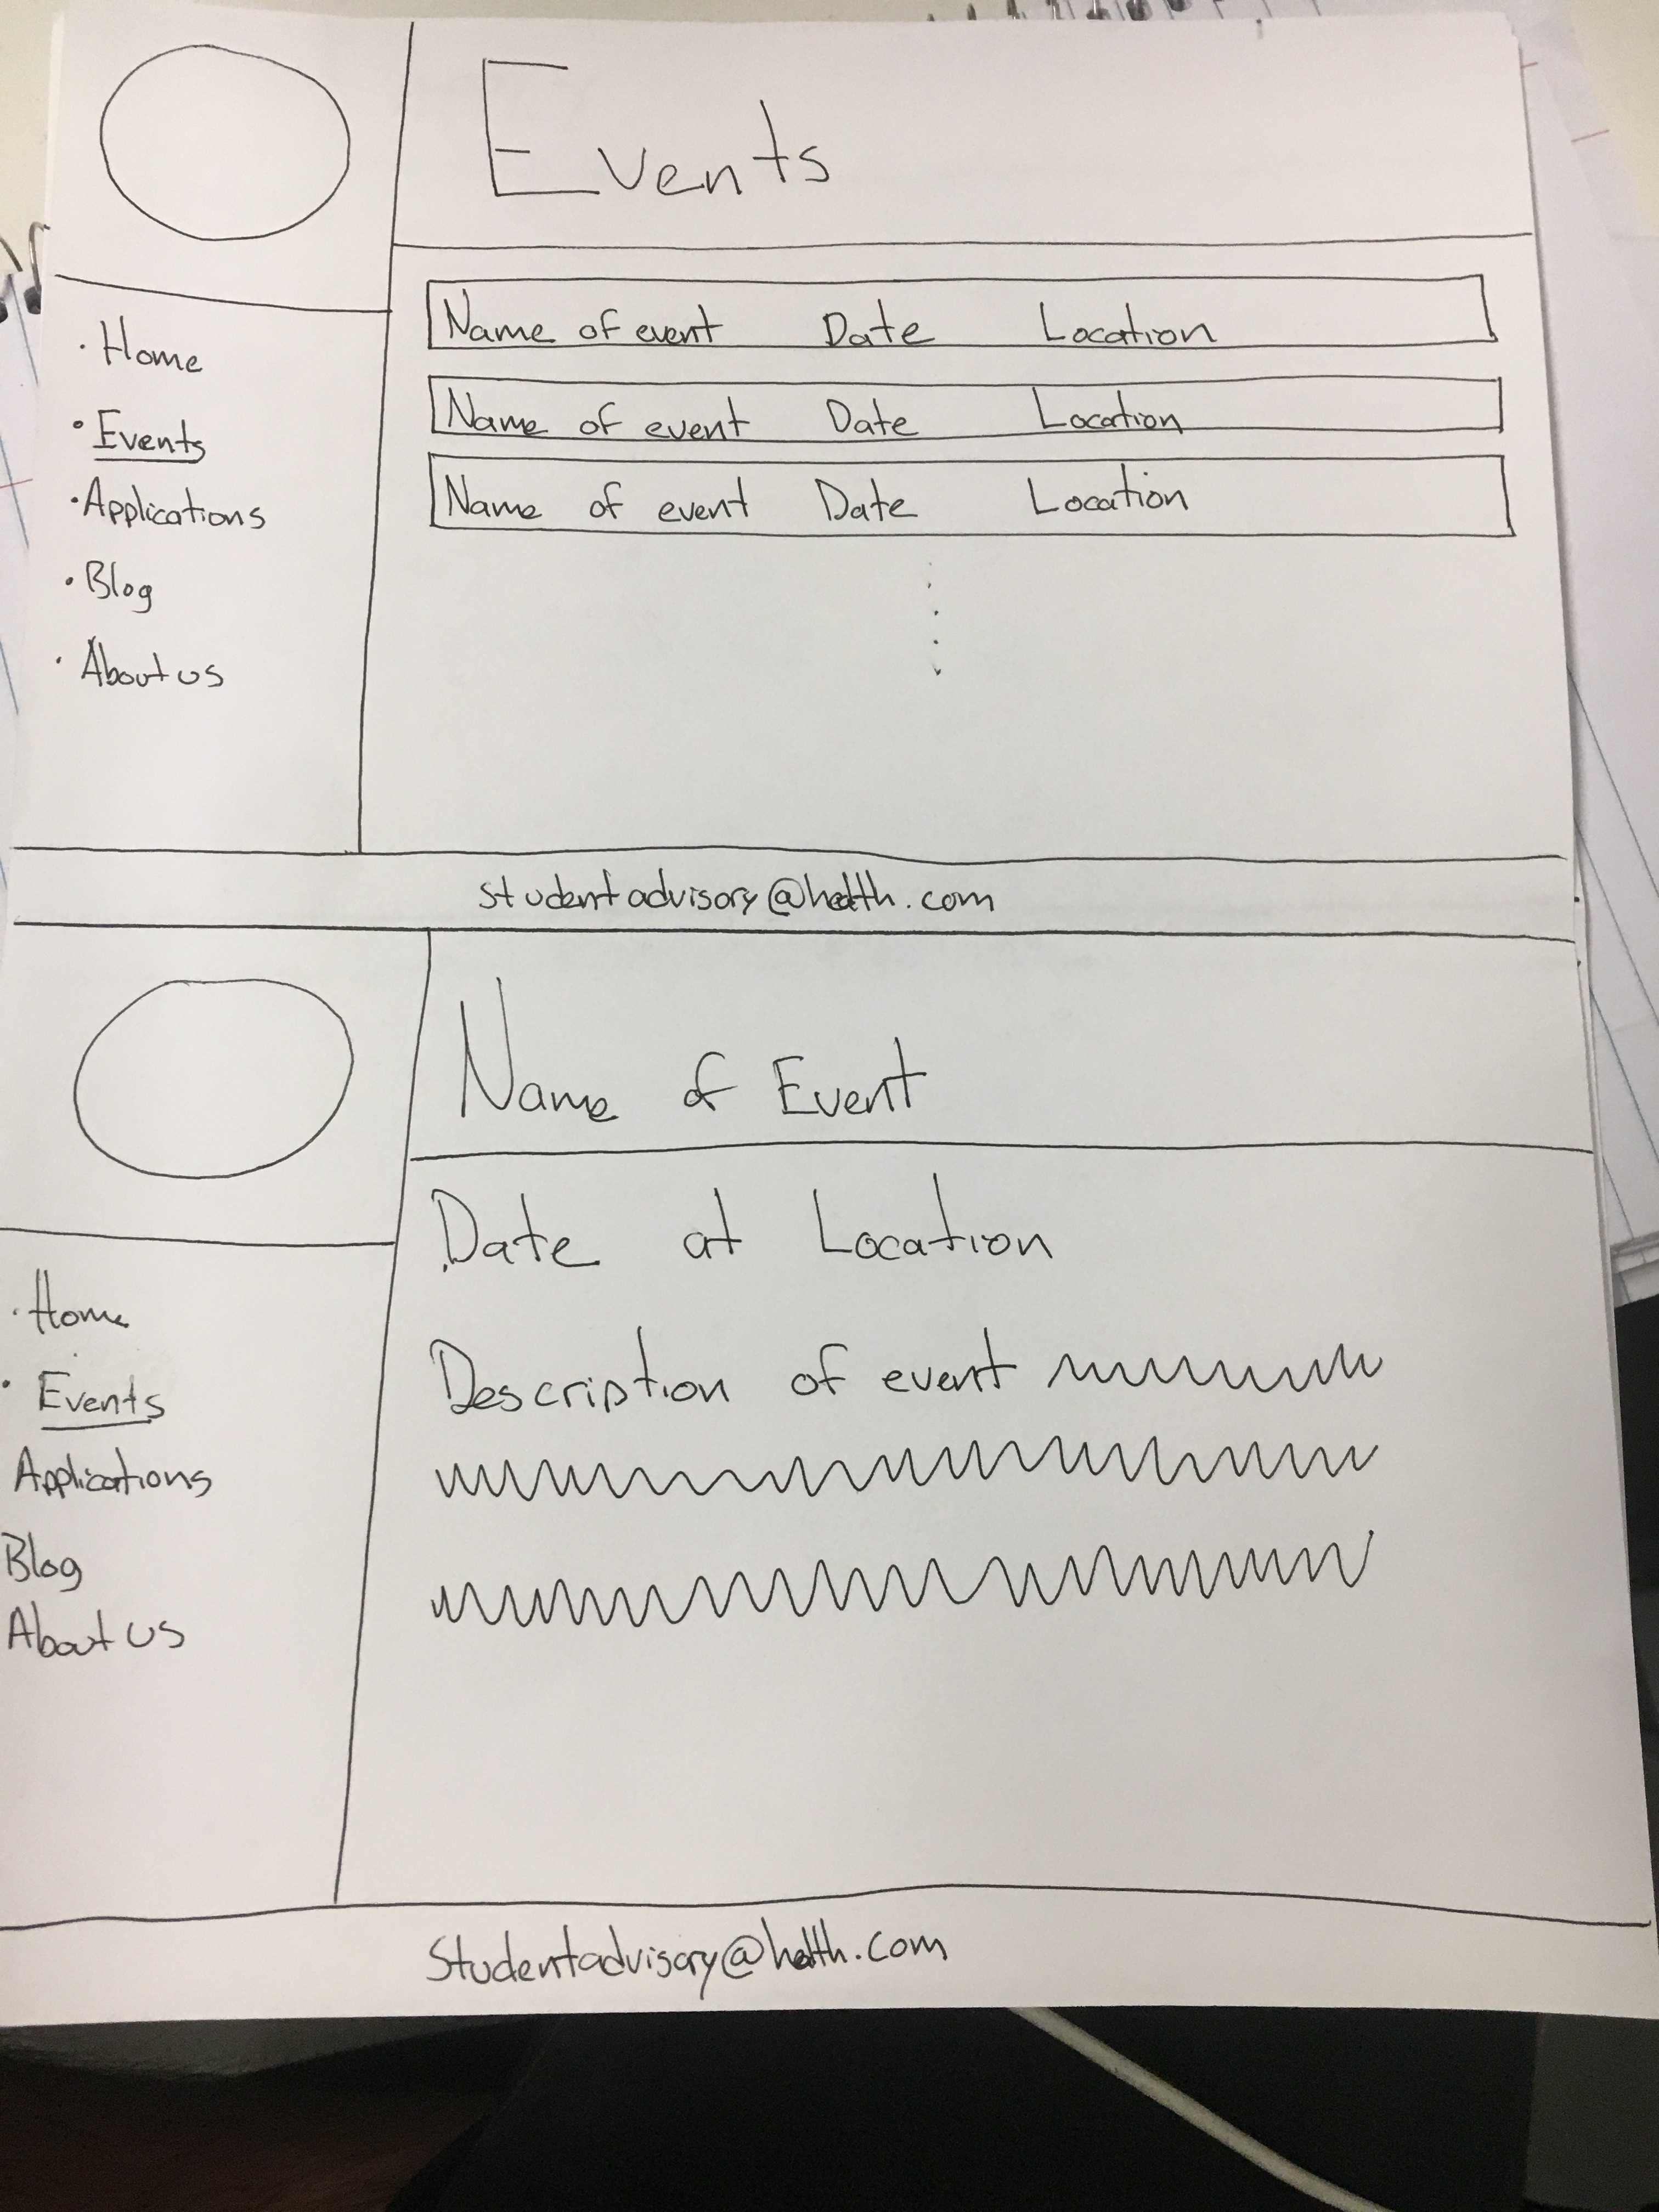 Events
· Home
· Events
· Applications
· Blog
· About us
Name of event Date Location
Name of event Date Location
Name of event Date Location
studentadvisory@health.com
Name of Event
· Home
· Events
Applications
Blog
About us
Date at Location
Description of event
Studentadvisory@health.com